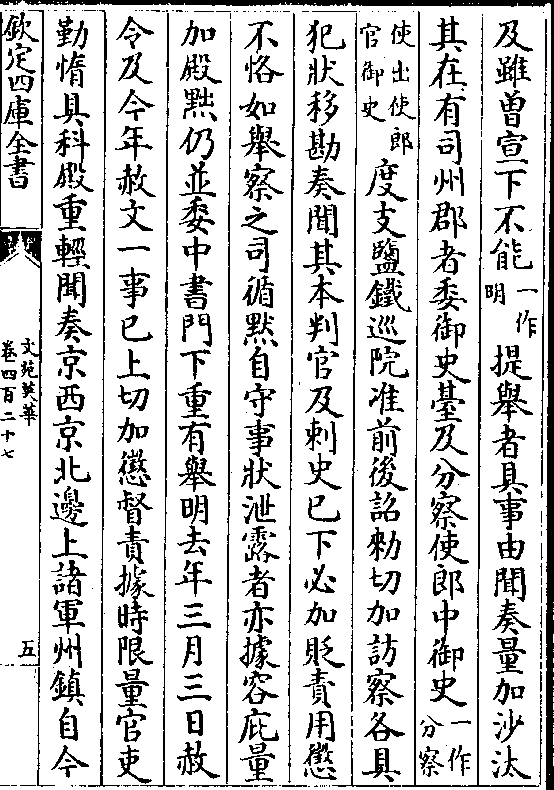 及雖曾宣下不能一作明提舉者具事由聞奏量加沙汰
其在有司州郡者委御史臺及分察使郎中御史一作分察
使出使郎官御史度支鹽鐵巡院准前後詔勑切加訪察各具
犯狀移勘奏聞其本判官及刺史已下必加貶責用懲
不恪如舉察之司循默自守事狀泄露者亦據容庇量
加殿黜仍並委中書門下重有舉明去年三月三日赦
令及今年赦文一事已上切加懲督責據時限量官吏
勤惰具科殿重輕聞奏京西京北邊上諸軍州鎮自今
欽定四庫全書
文苑英華
卷四百二十七
五